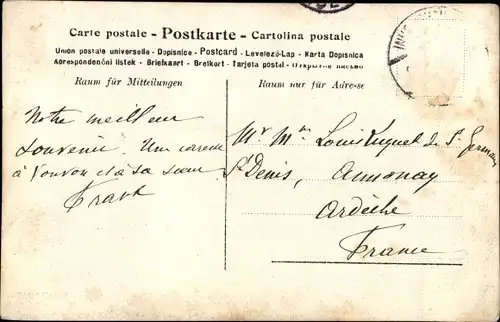 Carte postale - Postkarte - Cartolina postale
Union postale universelle - Dopisnice - Postcard - Levelező-Lap - Karta Dopisnica
Korespondenční lístek - Briefkaart - Brefkort - Tarjeta postal - Открытое письмо
Raum für Mitteilungen
Raum nur für Adresse
Notre meilleur
souvenir. Une caresse
à et à sa sœur
Frank
Mr Mme Louis de St Germain
St Denis, Annonay
Ardèche
France